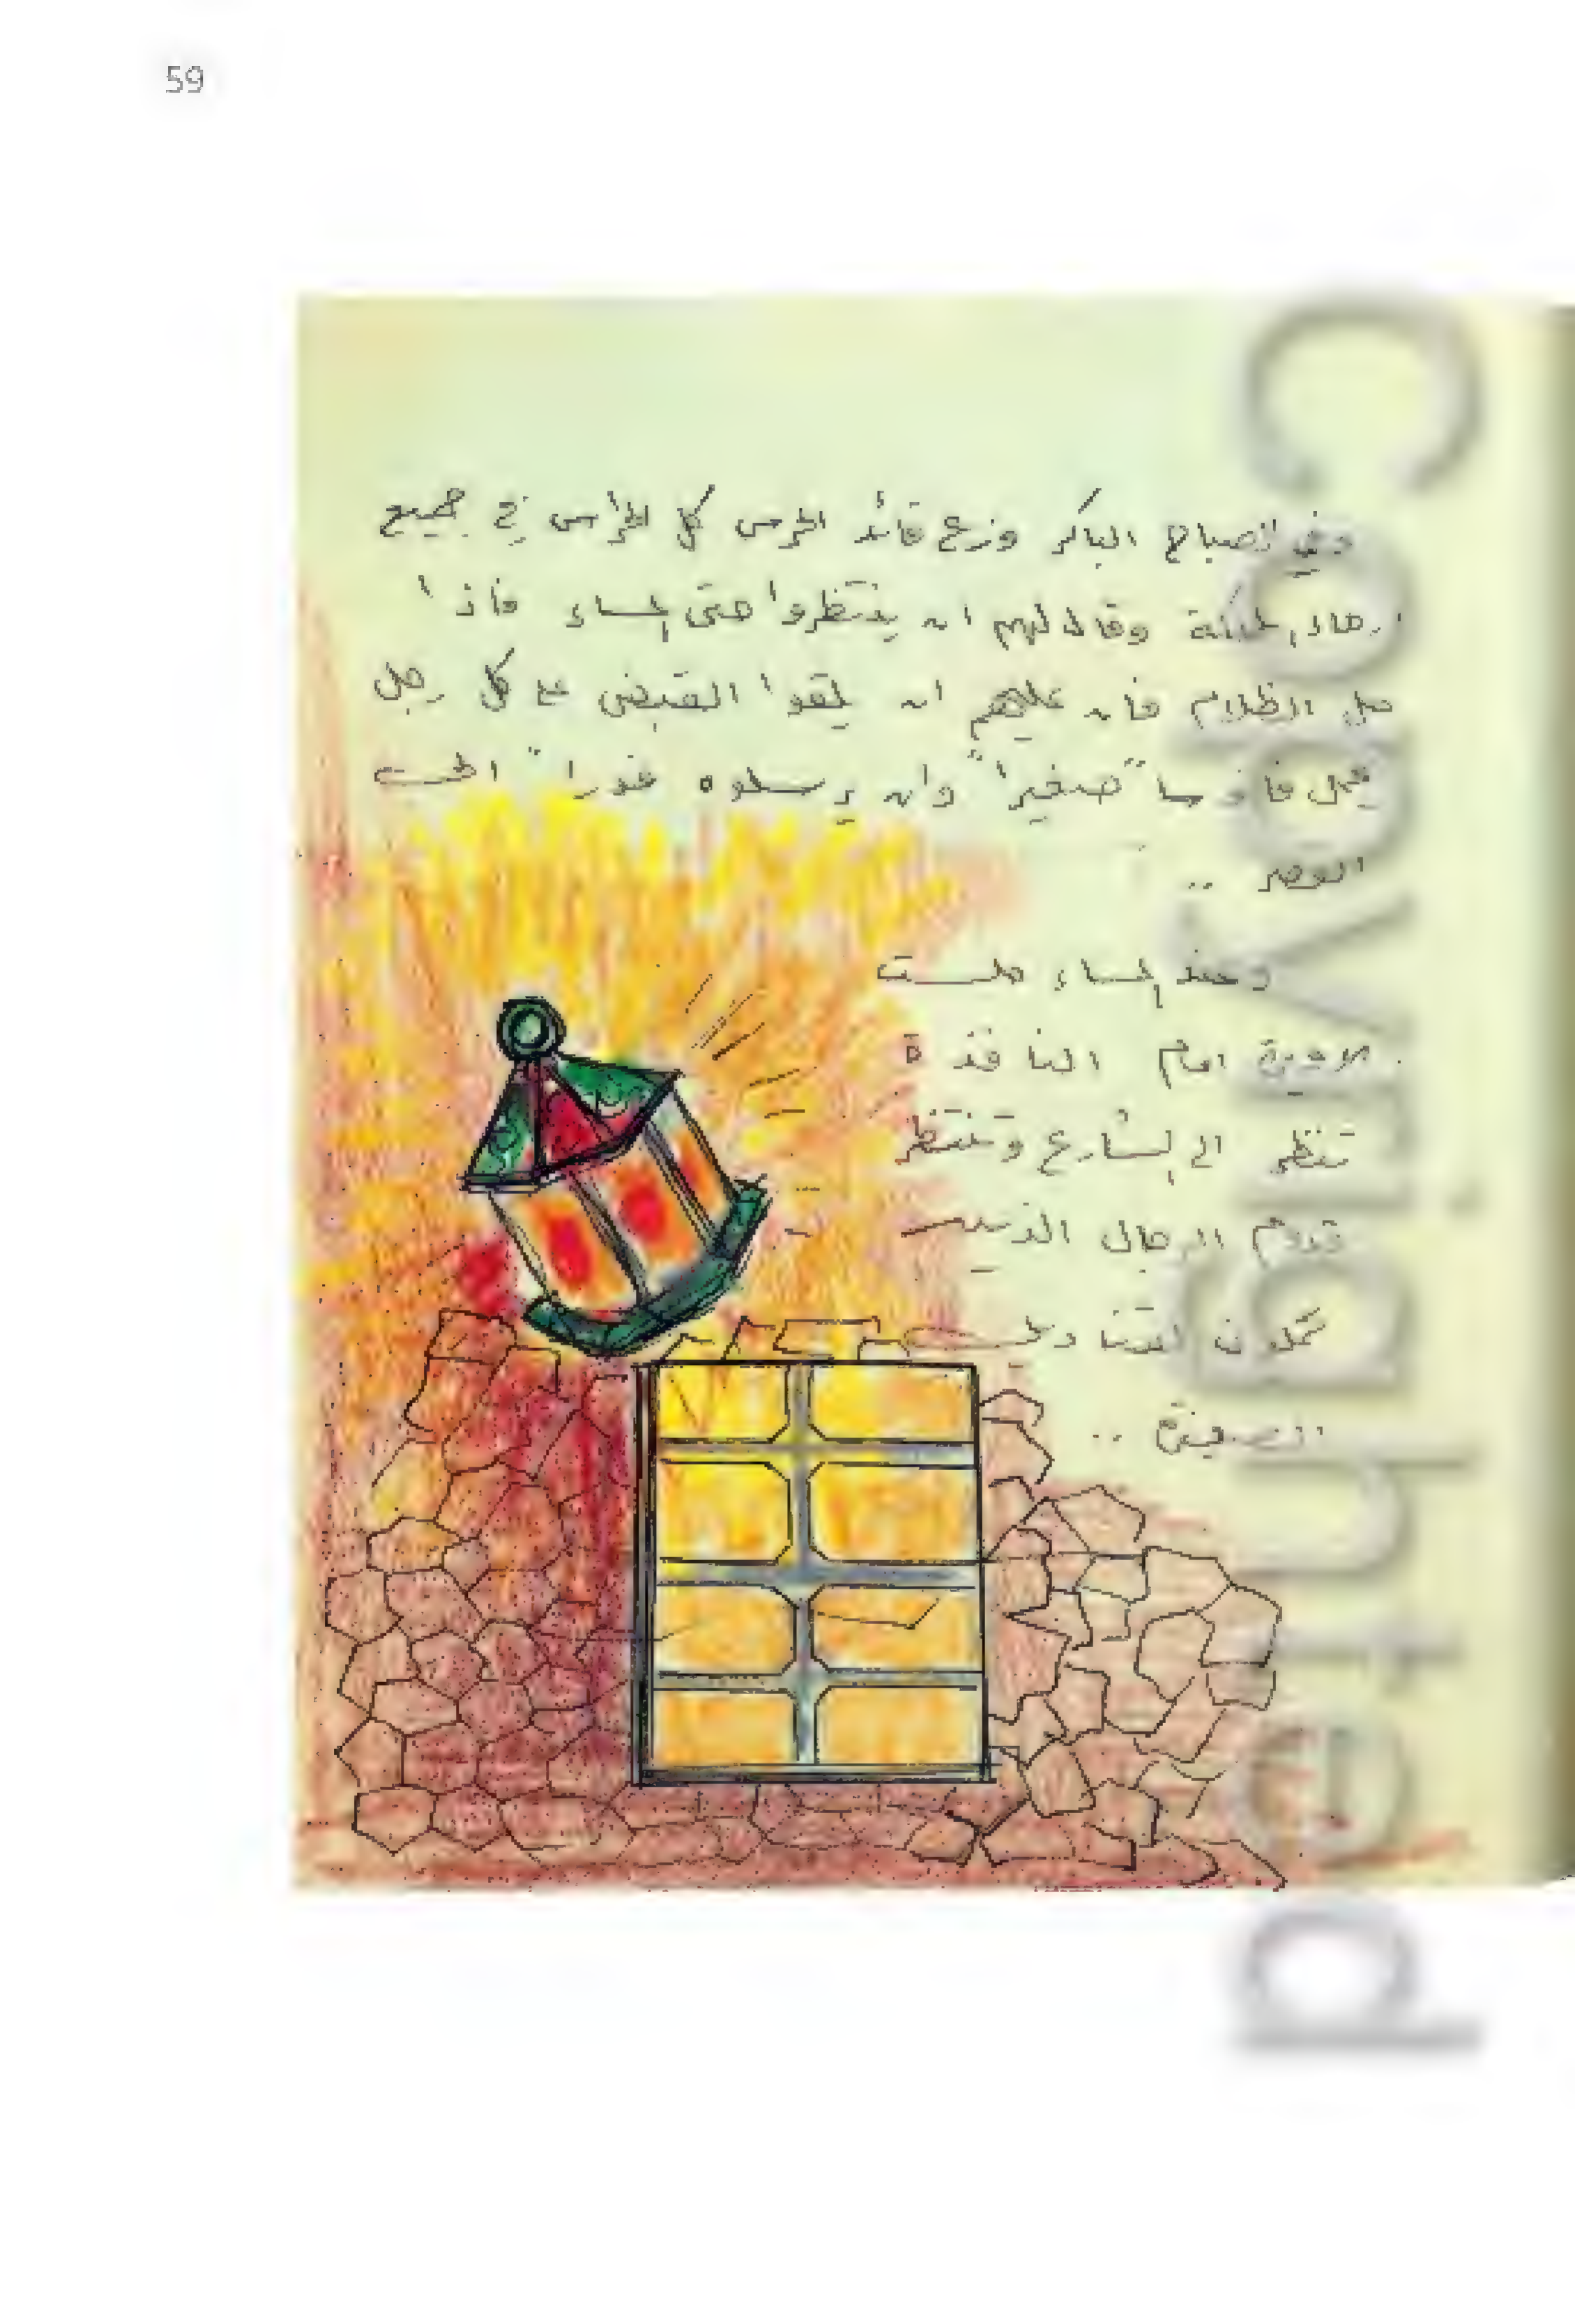 59
وفي الصباح الباكر وزع قائد الحرس كل الحراس في جميع
ارجاء المملكة وقال لهم ان ينتظروا حتى المساء فاذا
حل الظلام فان عليهم ان يلقوا القبض على كل رجل
يحمل فانوسا" صغيرا" وان يرسلوه فورا" الى
القصر ..
وعند المساء جلست
الاميرة امام النافذة
تنظر الى الشارع وتنتظر
قدوم الرجال الذين
يحملون الفوانيس
الصغيرة ..
Copyrighted